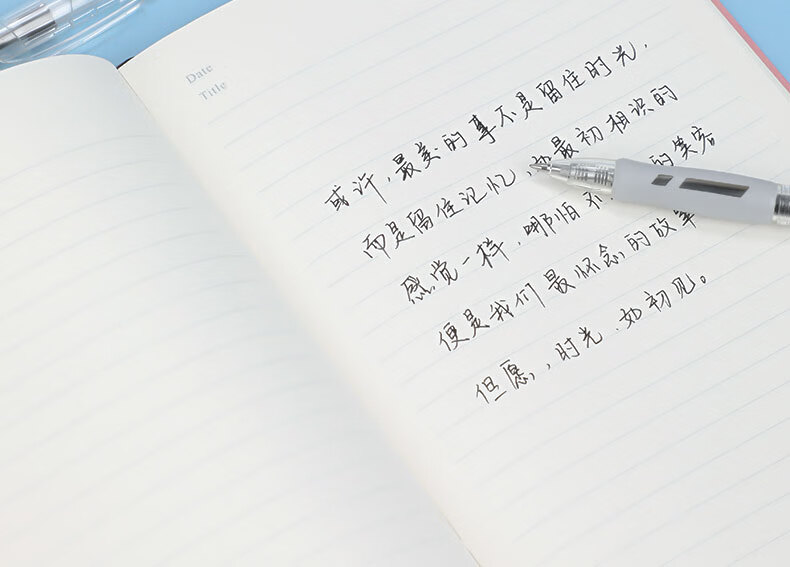 Date
Title
或许，最美的事不是留住时光，
而是留住记忆，如最初相识的
感觉一样，哪怕不 的笑容
便是我们最怀念的故事
但愿，时光，如初见。